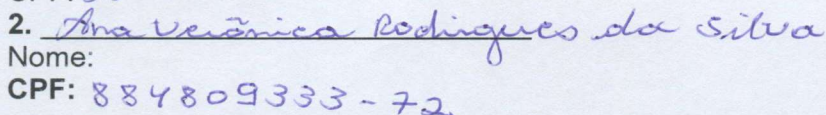 2. Ana Verônica Rodrigues da Silva
Nome:
CPF: 884809333-72